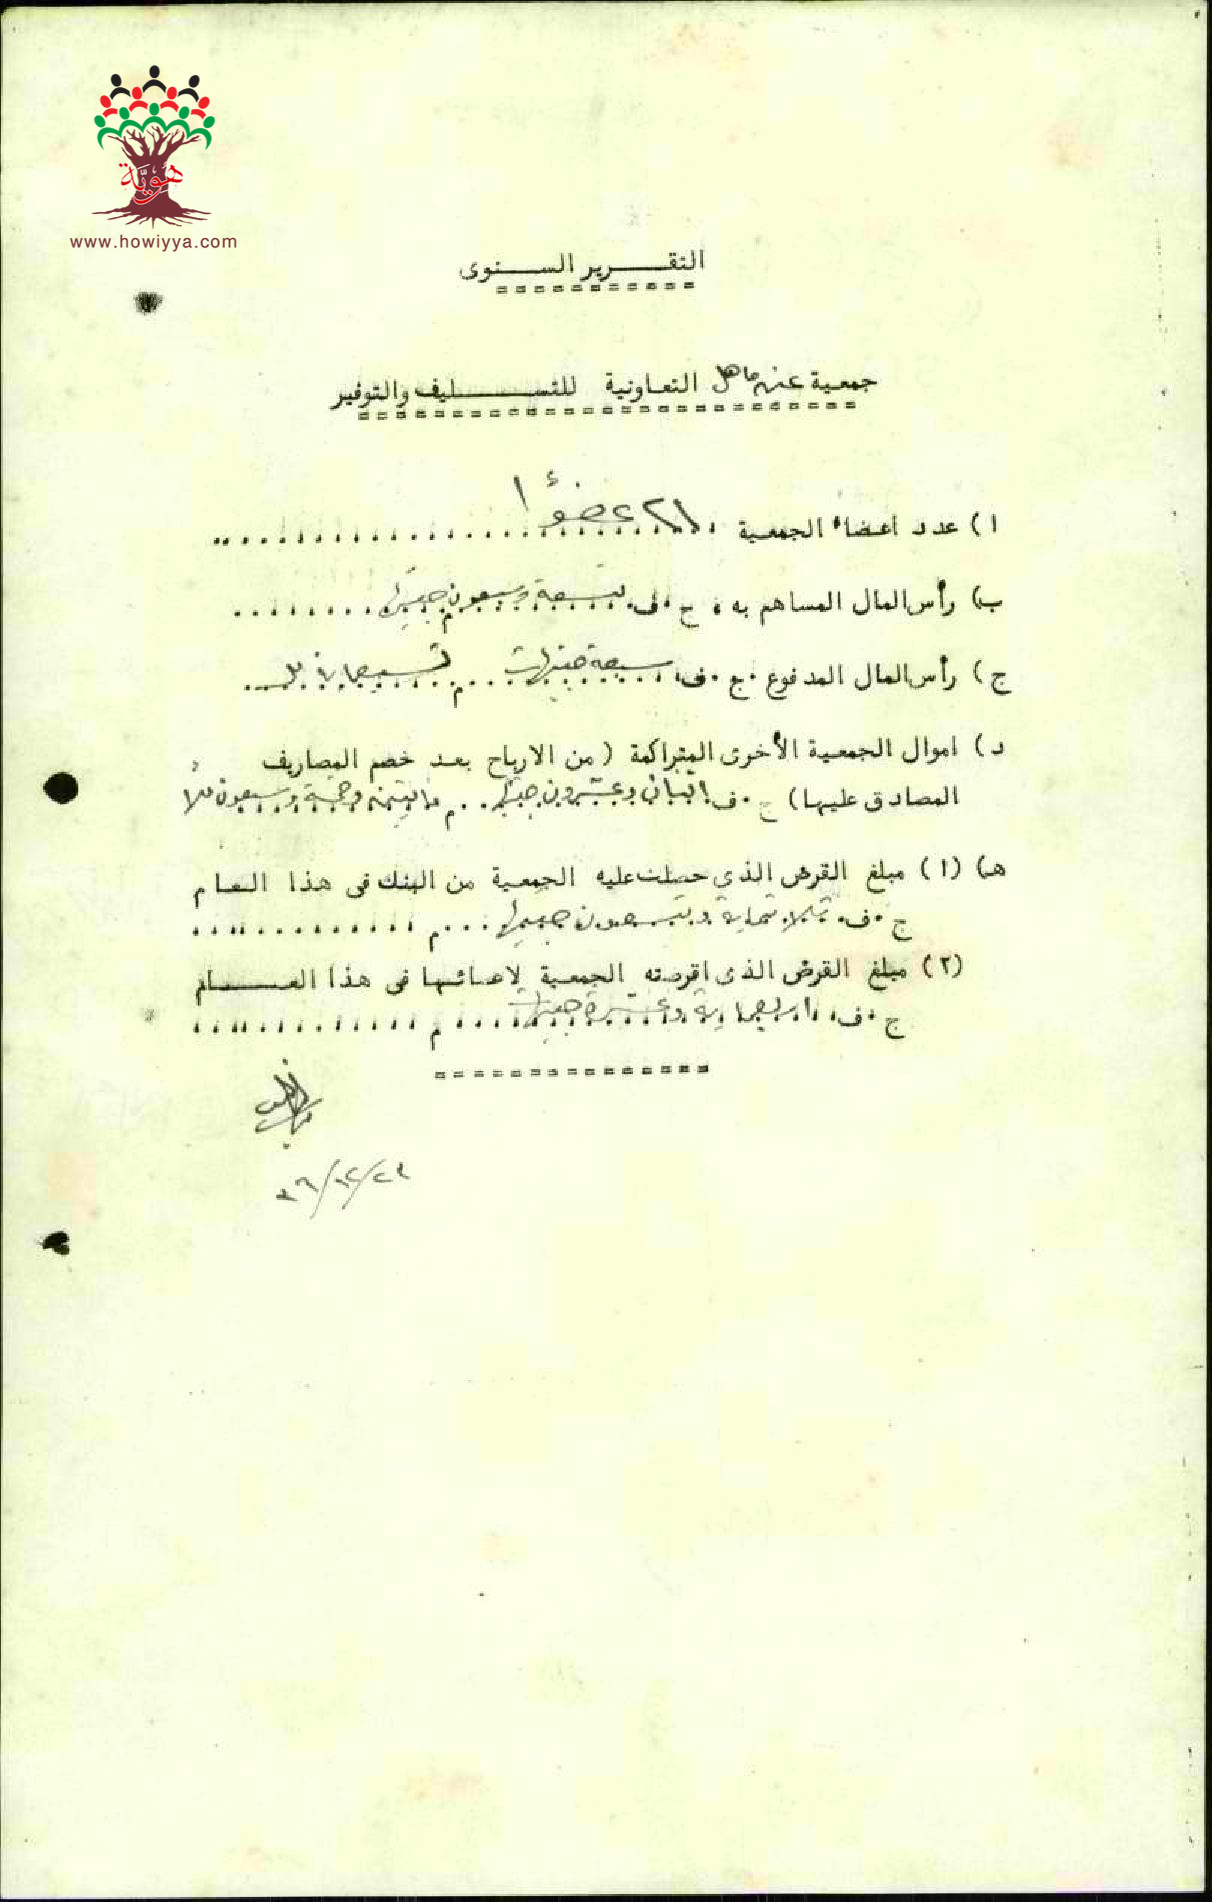 هوية
www.howiyya.com
التقرير السنوى
جمعية عين ماهل التعاونية للتسليف والتوفير
ا) عدد اعضاء الجمعية ٢١ عضوًا
ب) رأس المال المساهم به ج.ف. تسعة وسبعون جنيها
ج) رأس المال المدفوع ج.ف. سبعة جنيهات م تسعماية مل
د) اموال الجمعية الأخرى المتراكمة (من الارباح بعد خصم المصاريف
المصادق عليها) ج.ف اثنان وعشرون جنيها م وخمسة وسبعون ملا
هـ) (١) مبلغ القرض الذي حصلت عليه الجمعية من البنك فى هذا العام
ج.ف. ثلاثماية وتسعون جنيها م
(٢) مبلغ القرض الذى اقرضته الجمعية لاعضائها فى هذا العام
ج.ف. اربعماية وعشرة جنيهات م
٣٦/١٢/٢٣